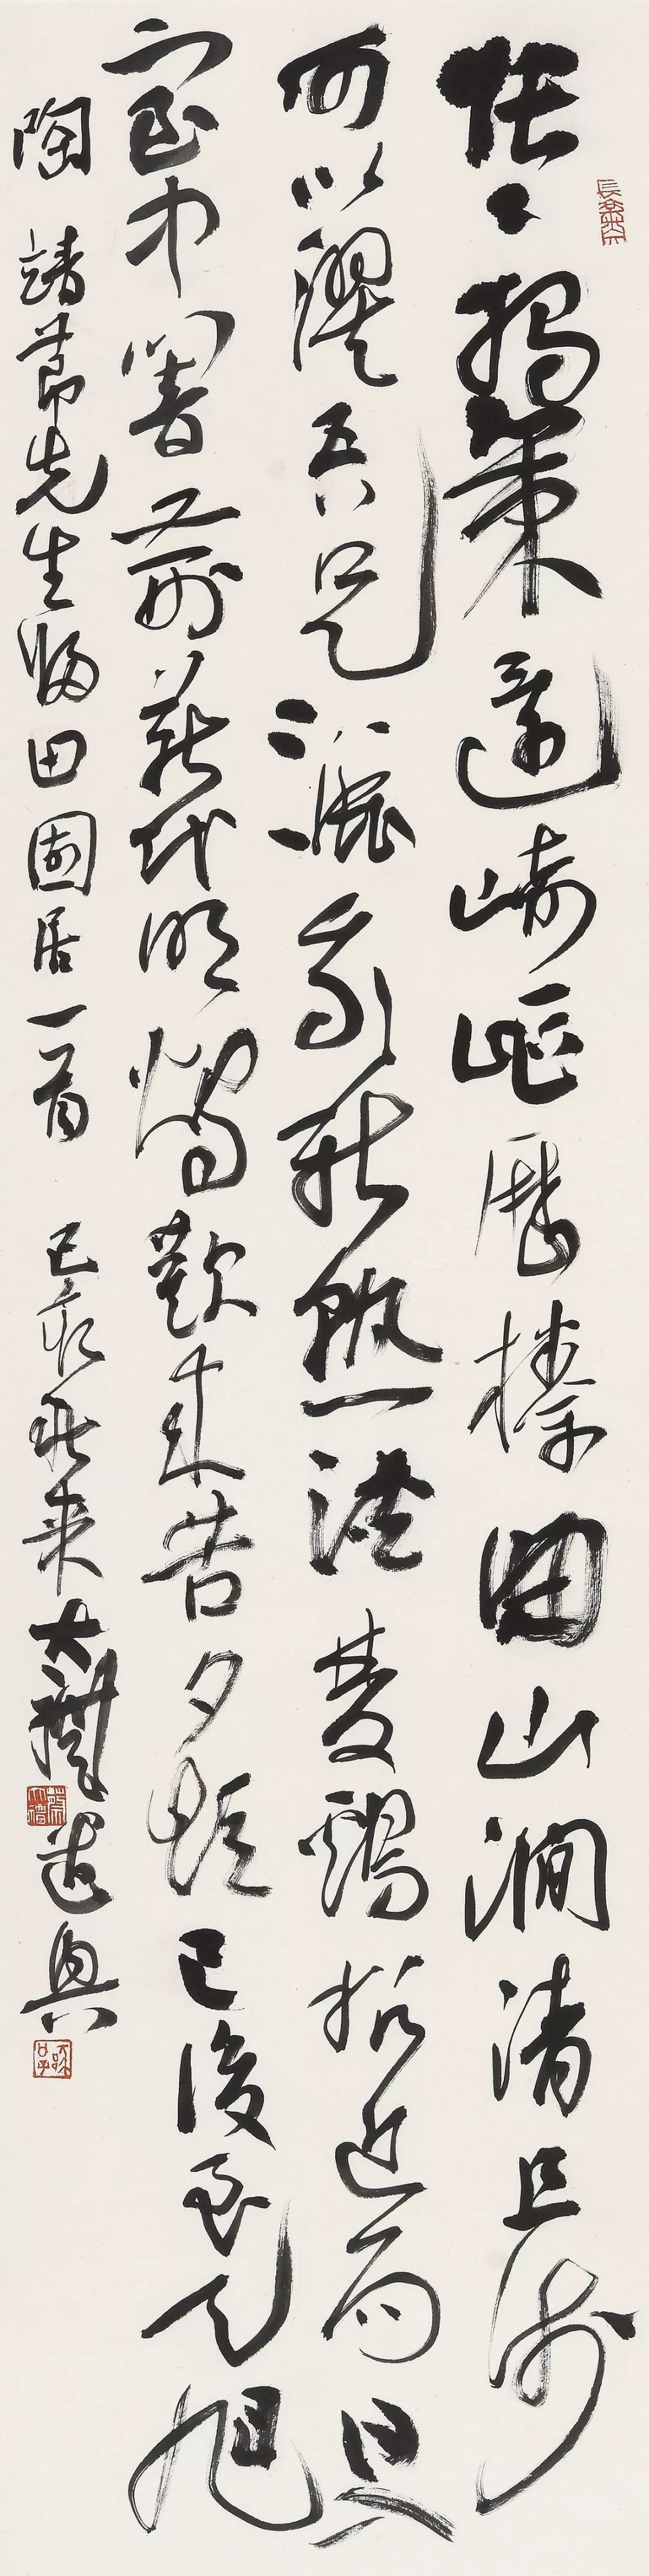 悵〻獨策還崎嶇歷榛曲山澗清且淺
可以濯吾足漉我新熟酒隻鷄招近局日入
室中闇荊薪代明燭歡來苦夕短已復至天旭
陶靖節先生歸田園居一首 己亥秋來大禮遣興